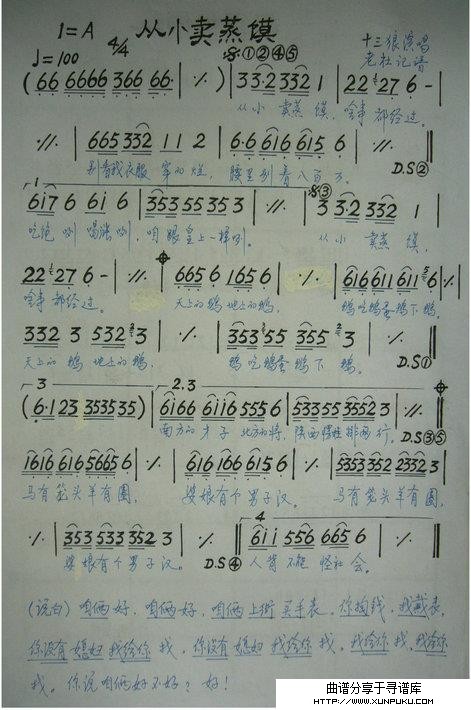 从小卖蒸馍
1=A 4/4
♩=100
十三狼演唱
老杜记谱
𝄋①②④⑤
(66 6666 366 66· | ٪ ) | 33·2 332 1 | 22 27 6 - |
从小 卖蒸 馍, 啥事 都经过。
·//· | 665 332 11 2 | 6·6 616 615 6 | ·//· ‖
别看我衣服 穿的烂, 腰里别着八百万。
D.S②
1
617 6 61 6 | 353 55 35 3 | ·//· | 𝄋③ 3 33·2 332 1 |
吃饱咧 喝涨咧, 咱跟皇上一样咧。 从小 卖蒸 馍,
22 27 6 - | ·//· | 665 6 165 6 | ٪ | 616 611 611 6 |
啥事 都经过。 天上的鹅 地上的鹅, 鹅吃鹅蛋鹅下鹅。
332 3 532 3 | ٪ | 353 55 355 3 | ٪ ‖
天上的鹅 地上的鹅, 鹅吃鹅蛋鹅下 鹅。
D.S①
3
2.3
(6·123 353535) | 6166 6116 555 6 | 5335 55 3552 3 | ·//· ‖
南方的才子 北方的将, 陕西 排两行。
D.S③⑤
1616 616 5665 6 | ٪ | 616 166 615 6 | ٪ | 5353 352 2332 3 |
马有笼头羊有圈, 婆娘有个男子汉。 马有笼头羊有圈,
٪ | 353 533 352 3 | ٪ ‖ 4 611 556 665 6 ‖
婆娘有个男子汉。 D.S④ 人背不能 怪社会。
(说白) 咱俩好, 咱俩好, 咱俩上街买手表。你掏钱, 我戴表,
你没有媳妇我给你 找。你没有媳妇 我给你 找。我给你 找, 我给你
找。你说咱俩好不好? 好!
曲谱分享于寻谱库
HTTP://WWW.XUNPUKU.COM